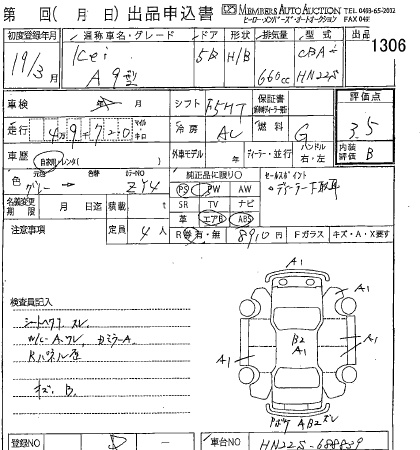 第 回( 月 日)出品申込書 MEMBERS AUTO AUCTION TEL 0493-65-2002
ヒーロー・メンバーズ・オートオークション FAX 049
初度登録年月 通称車名・グレード ドア 形状 排気量 型式 出品
19/3月 Kei 5D H/B 660cc CBA- 1306
A 9型 HN22S
車検 月 シフト F5MT 保証書 評価点
走行 4万9千720 マイル キロ 冷房 AC 燃料 G 3.5
車歴 自家用 レンタ( ) 外車モデル 年 ディーラー・並行 ハンドル 右・左 内装評価 B
元色 色替 カラーNO 純正品に限り○ セールスポイント
色 グレー → ZY4 PS PW AW ディーラー下取車
名義変更期限 月 日迄 積載 t SR TV ナビ
革 エアB ABS
注意事項 定員 4人 R券 有・無 8910円 Fガラス キズ・A・X要す
検査員記入
シートヘタリ スレ
Kパネル
キズ. B.
A1
A1
A1
B2
A1
A1
A1
登録NO 車台NO HN22S-688839